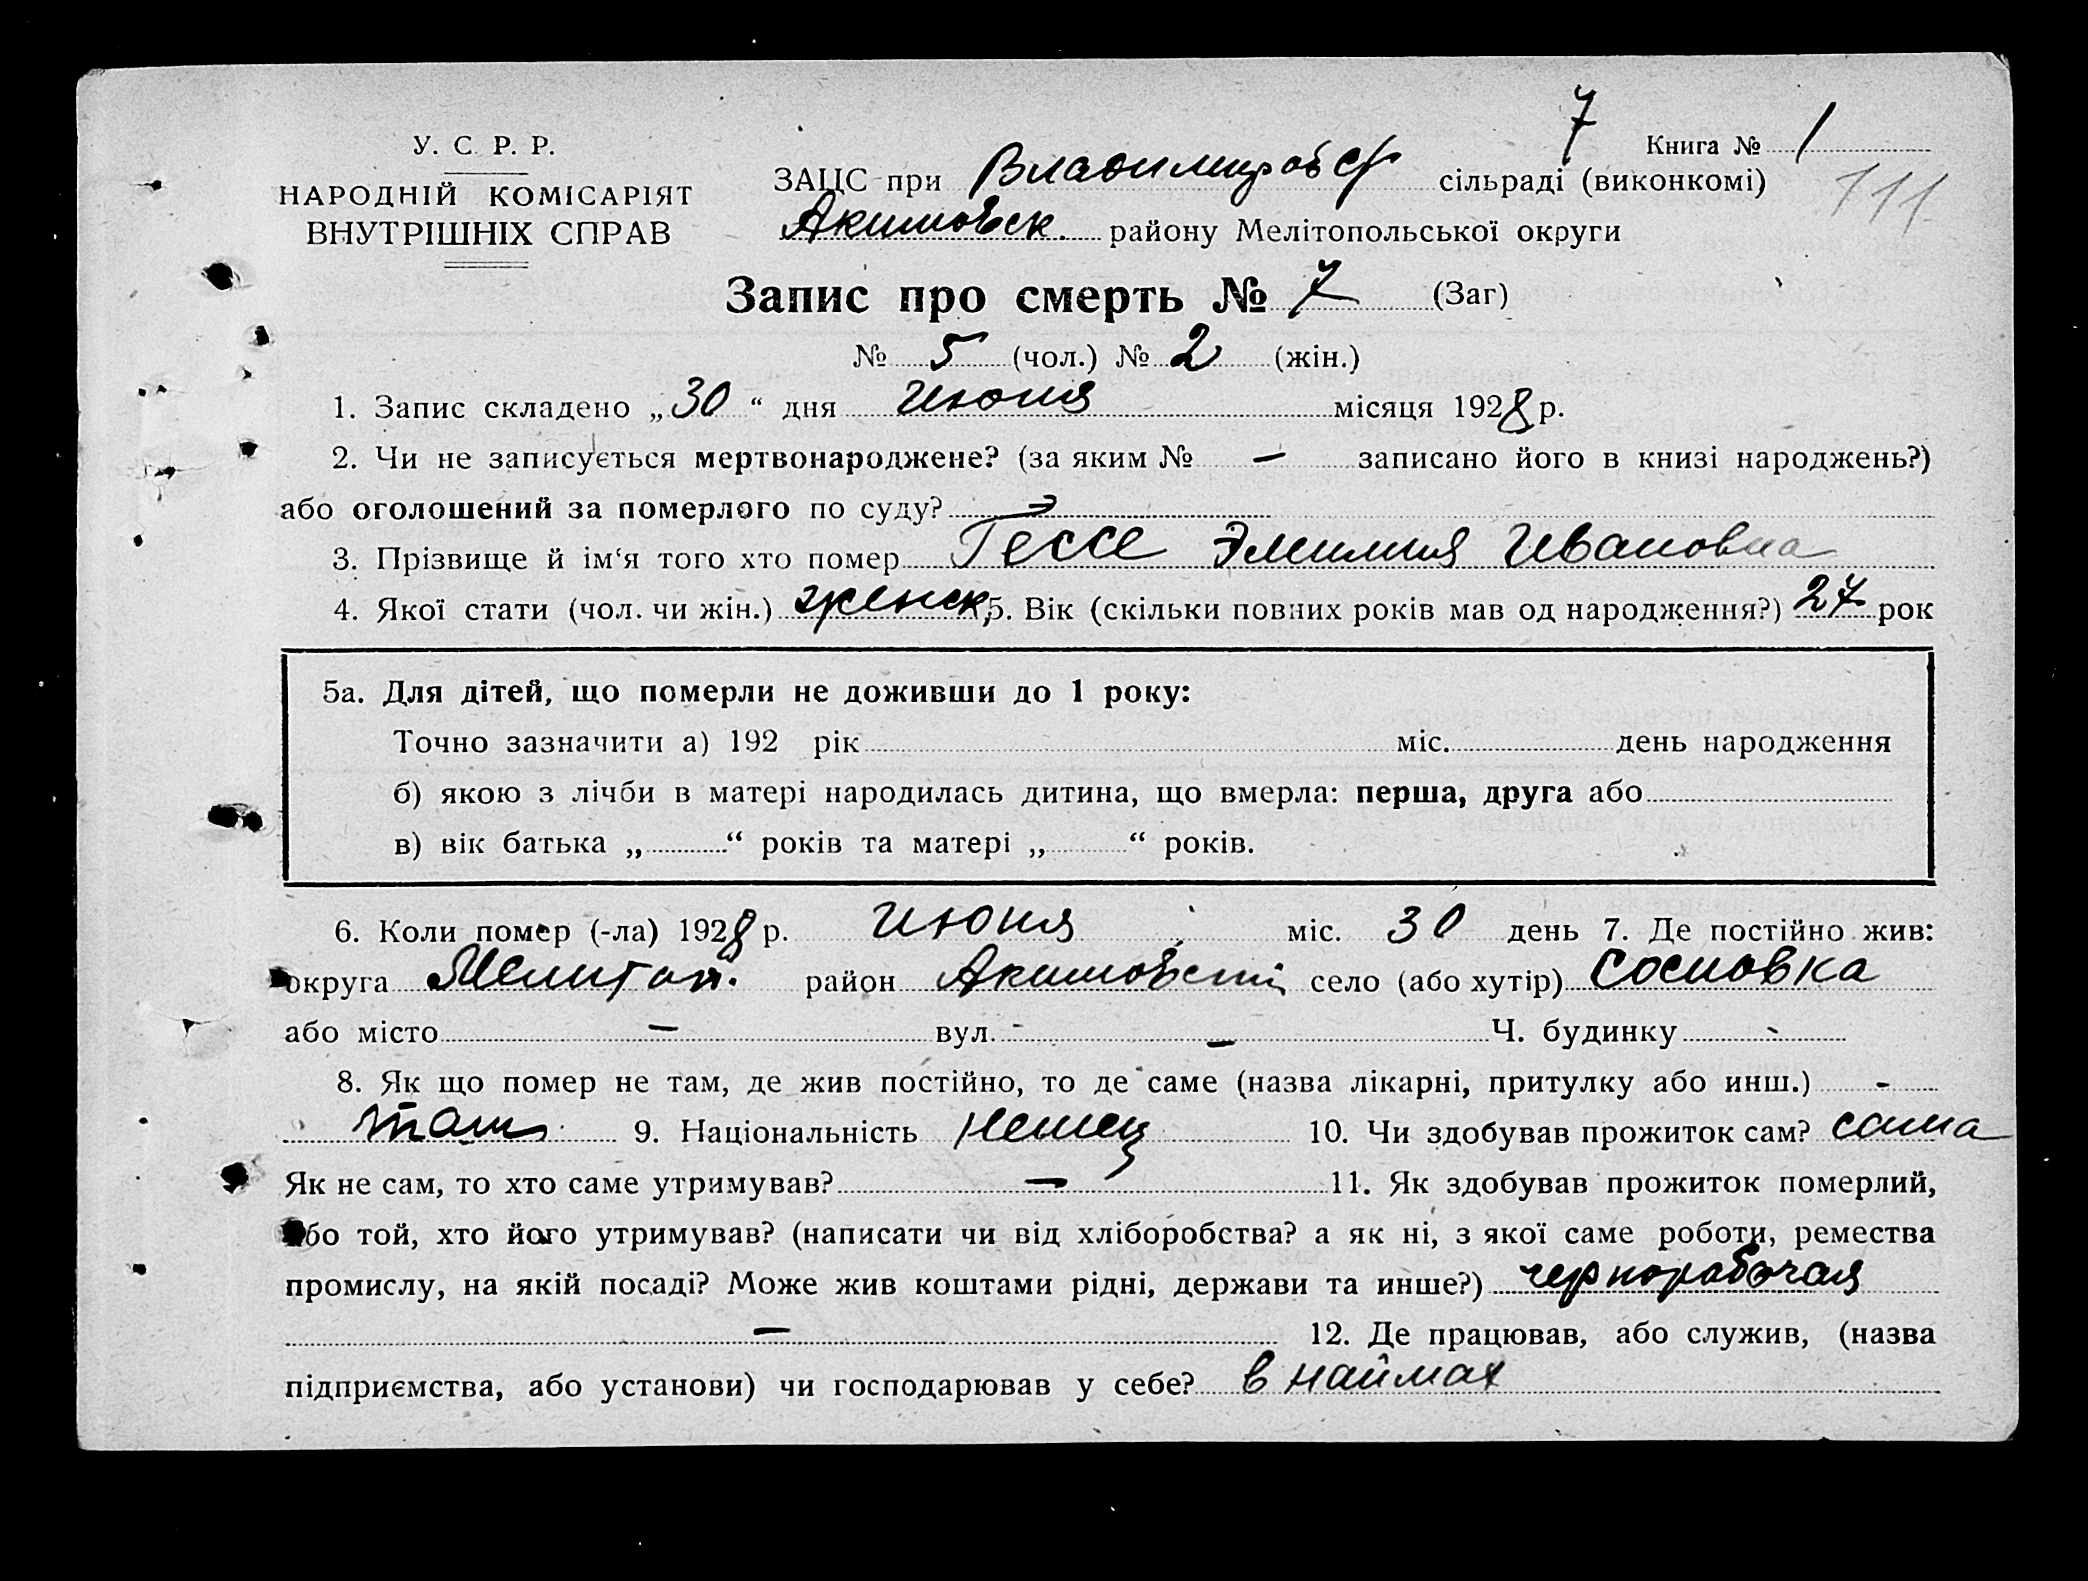 7 Книга № 1
У. С. Р. Р.
НАРОДНІЙ КОМІСАРІЯТ
ВНУТРІШНІХ СПРАВ
ЗАЦС при сільраді (виконкомі)
111
Акимовск. району Мелітопольської округи
Запис про смерть № 7 (Заг)
№ 5 (чол.) № 2 (жін.)
1. Запис складено „30“ дня июня місяця 1928 р.
2. Чи не записується мертвонароджене? (за яким № — записано його в книзі народжень?)
або оголошений за померлого по суду? —
3. Прізвище й ім‘я того хто помер Гессе Эмилия Ивановна
4. Якої стати (чол. чи жін.) женск. 5. Вік (скільки повних років мав од народження?) 27 рок
5а. Для дітей, що померли не доживши до 1 року:
Точно зазначити а) 192 рік міс. день народження
б) якою з лічби в матері народилась дитина, що вмерла: перша, друга або
в) вік батька „ “ років та матері „ “ років.
6. Коли помер (-ла) 1928 р. июня міс. 30 день 7. Де постійно жив:
округа Мелитоп. район Акимовский село (або хутір) Сосновка
або місто — вул. — Ч. будинку -
8. Як що помер не там, де жив постійно, то де саме (назва лікарні, притулку або инш.) -
там 9. Національність немец 10. Чи здобував прожиток сам? сама
Як не сам, то хто саме утримував? — 11. Як здобував прожиток померлий,
або той, хто його утримував? (написати чи від хліборобства? а як ні, з якої саме роботи, ремества
промислу, на якій посаді? Може жив коштами рідні, держави та инше?) чернорабочая
— 12. Де працював, або служив, (назва
підприємства, або установи) чи господарював у себе? в наймах